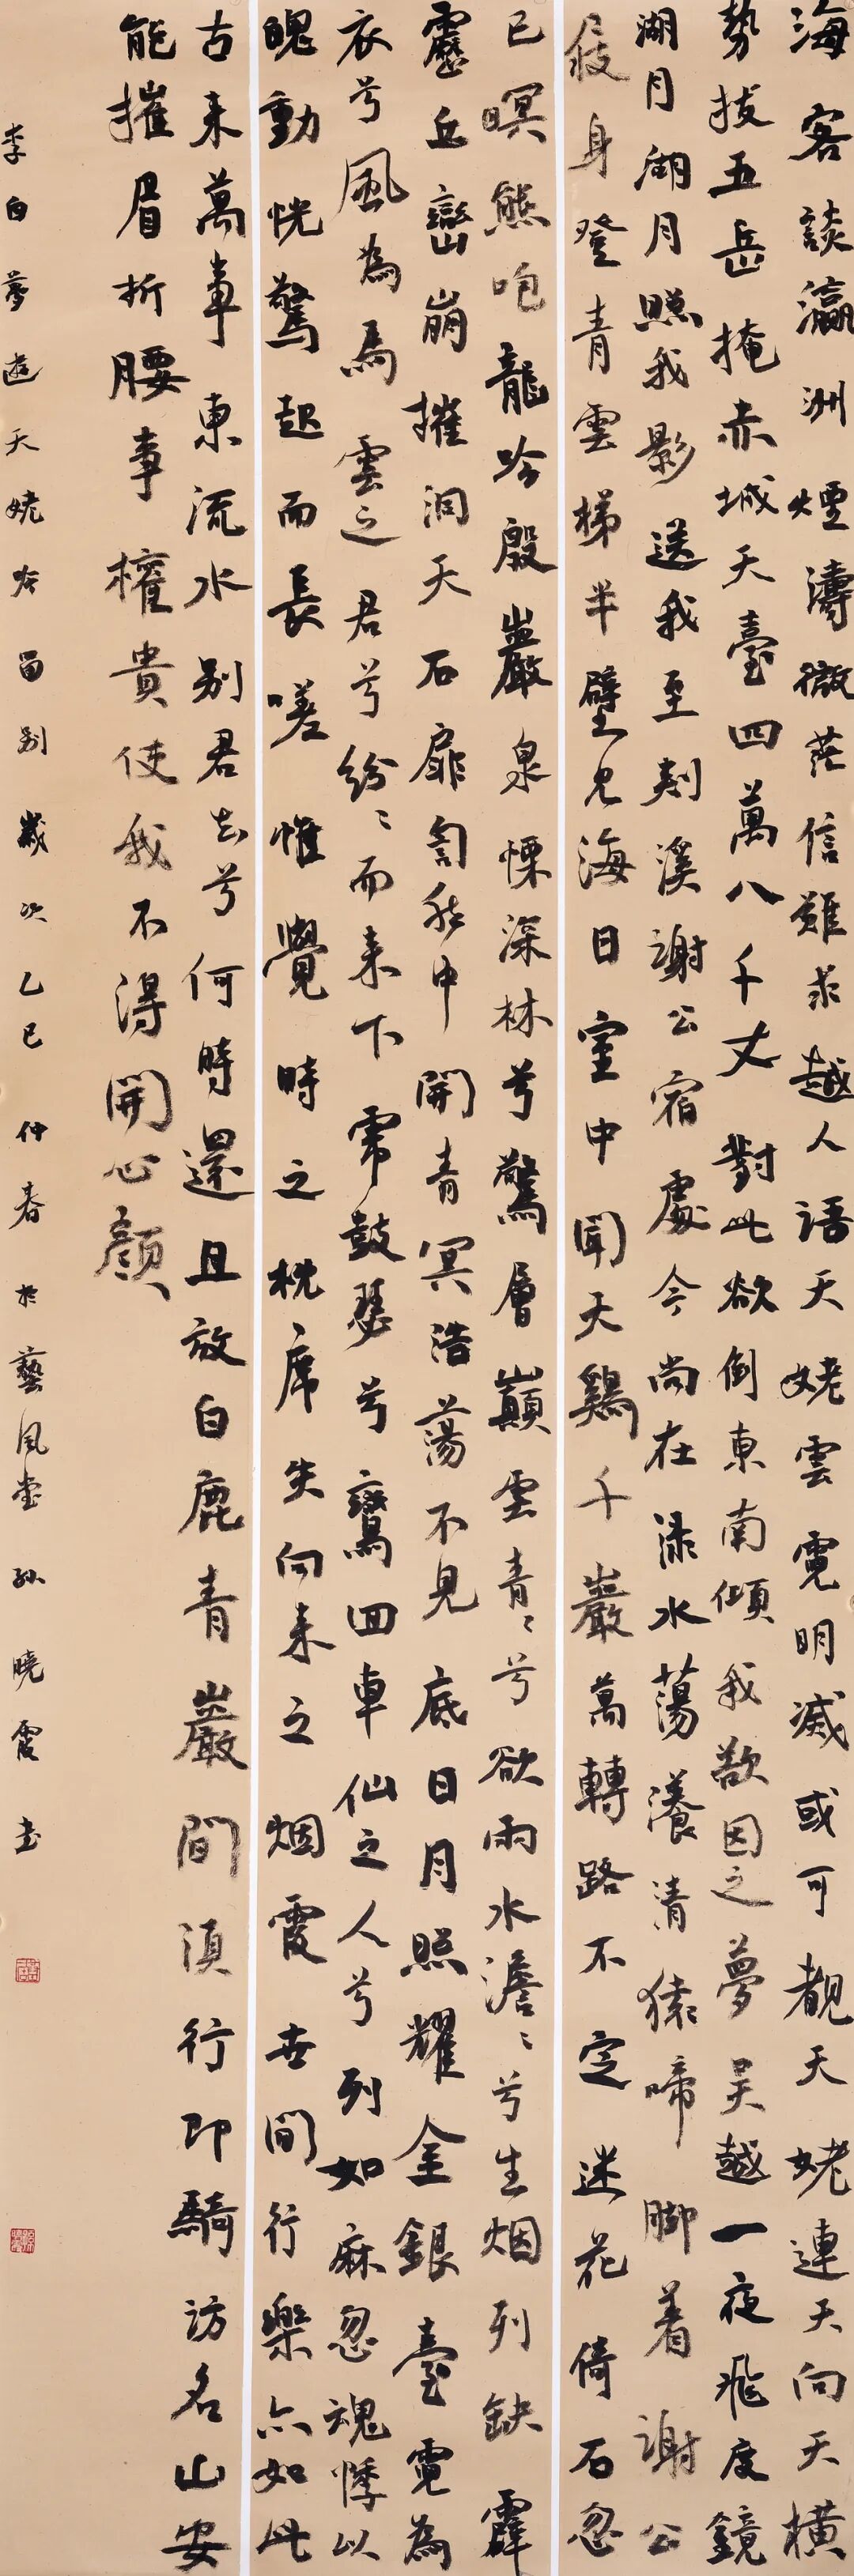 海客談瀛洲煙濤微茫信難求越人語天姥雲霓明滅或可覩天姥連天向天橫
勢拔五岳掩赤城天臺四萬八千丈對此欲倒東南傾我欲因之夢吴越一夜飛度鏡
湖月湖月照我影送我至剡溪謝公宿處今尚在淥水蕩瀁清猿啼脚着謝公
屐身登青雲梯半壁見海日空中聞天鷄千巖萬轉路不定迷花倚石忽
已暝熊咆龍吟殷巖泉慄深林兮驚層巔雲青〻兮欲雨水澹〻兮生烟列缺霹
靂丘巒崩摧洞天石扉訇然中開青冥浩蕩不見底日月照耀金銀臺霓為
衣兮風為馬雲之君兮紛〻而来下虎鼓瑟兮鸞回車仙之人兮列如麻忽魂悸以
魄動恍驚起而長嗟惟覺時之枕席失向来之烟霞世間行樂亦如此
古来萬事東流水别君去兮何時還且放白鹿青巖間須行即騎訪名山安
能摧眉折腰事權貴使我不得開心顔
李白夢遊天姥吟留别歲次乙巳仲春於藝風堂孫曉霞書